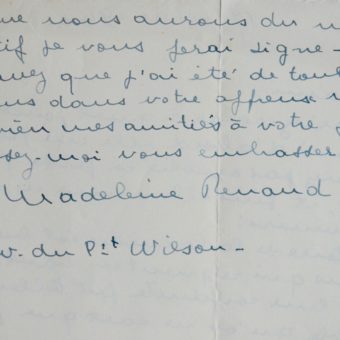 ue nous aurons du
tif je vous ferai signe -
vez que j'ai été de tout
us dans votre affreux
ien mes amitiés à votre
sez-moi vous embrasser
Madeleine Renaud
v. du Pit Wilson -